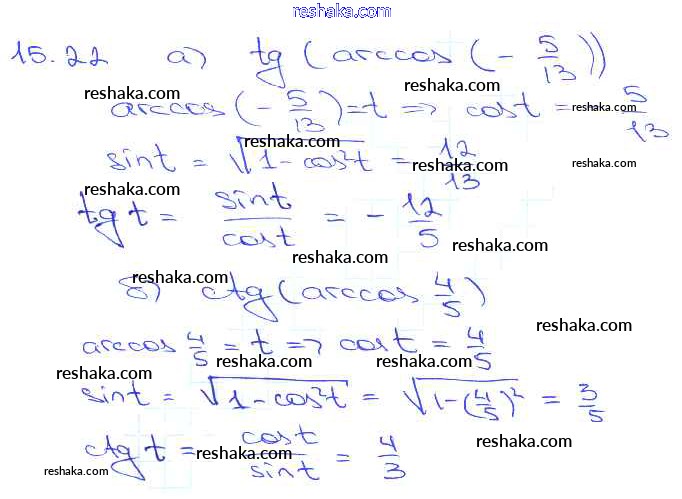 reshaka.com
15.22 а) tg (arccos (- 5/13))
reshaka.com
arccos (- 5/13) = t => cos t = 5/13
reshaka.com
reshaka.com
sin t = √(1 - cos²t) = 12/13
reshaka.com
reshaka.com
tg t = sin t / cos t = - 12/5
reshaka.com
reshaka.com
reshaka.com
б) ctg (arccos 4/5)
reshaka.com
arccos 4/5 = t => cos t = 4/5
reshaka.com
reshaka.com
reshaka.com
sin t = √(1 - cos²t) = √(1 - (4/5)²) = 3/5
reshaka.com
ctg t = cos t / sin t = 4/3
reshaka.com
reshaka.com
reshaka.com